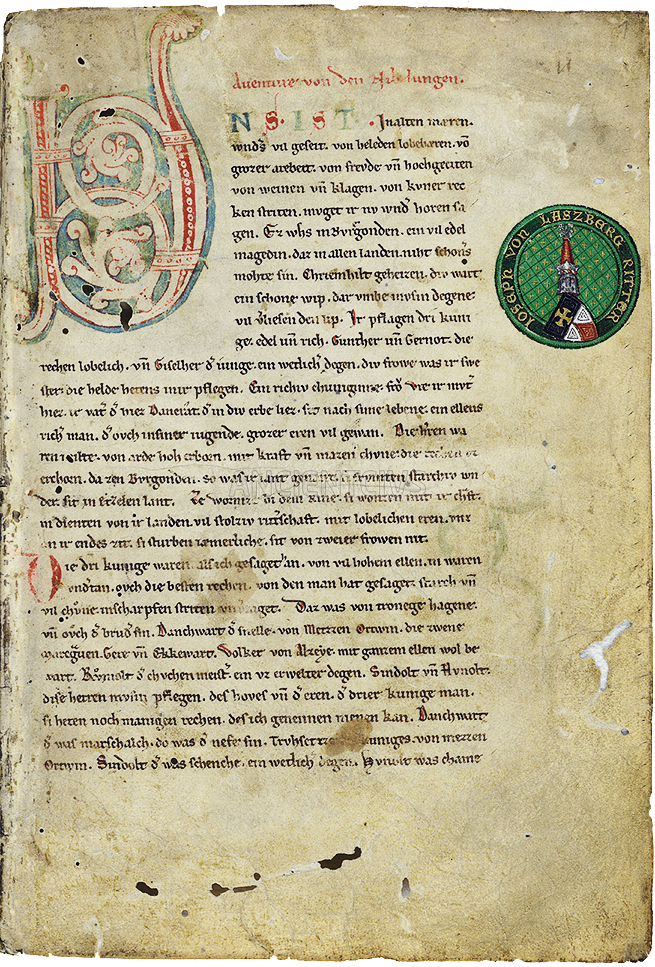 Auenture von den Nibelungen.
UNS IST . Inalten mæren.
wnds vil geseit. von heleden lobebæren. võ
grozer arebeit. von frevde vñ hochgeciten
von weinen vñ klagen. von kvner rec
ken striten. mvget ir nv wnd horen sa
gen. Ez whs inBvrgonden. ein vil edel
magedin. daz in allen landen. niht schoners
mohte sin. Chriemhilt geheizen. div wart
ein schone wip. dar vmbe mvsin degene.
vil vliesen den lip. Ir pflagen dri kuni
ge. edel vñ rich. Gunther vñ Gernot. die
rechen lobelich. vñ Giselher d iunge. ein wetlich degen. div frowe was ir swe
ster. die helde hetens inir pflegen. Ein richiv chuniginne. frō Vte ir mvt
hiez. ir vat d hiez Dancrat. d in div erbe liez. sit nach sime lebene. ein ellens
rich man. d ovch insiner iugende. grozer eren vil gewan. Die herren wa
ren milte. von arde hoh erborn. mit kraft vñ mazen chvne. die rechen
erchorn. da zen Bvrgonden. so was ir lant genant. si frvmten starchiv wn
der. sit in Etzelen lant. Ze wormz bi dem Rine. si wonten mit ir chft.
in dienten von ir landen. vil stolziv ritschaft. mit lobelichen eren. vnz
an ir endes zit. si sturben iæmerliche. sit von zweier frowen nit.
Die dri kunige waren. als ich gesaget han. von vil hohem ellen. in waren
vndtan. ovch die besten rechen. von den man hat gesaget. starch vñ
vil chvne. inscharpfen striten vnverzaget. Daz was von tronege hagene.
vñ ovch d brvd sin. Danchwart d snelle. von Metzzen Ortwin. die zwene
marcgven. Gere vñ Ekkewart. Volker von Alzeye. mit ganzem ellen wol be
wart. Rvmolt d chvchen meist. ein vz erwelter degen. Sindolt vñ Hvnolt.
dise herren mvsin pflegen. des hoves vñ d eren. d drier kunige man.
si heten noch manigen rechen. des ich genennen niemen kan. Danchwart
d was marschalch. do was d nefe sin. Trvhsetze des kuniges. von metzen
Ortwin. Sindolt d was schenche. ein wetlich degen. Hvnolt was chame
IOSEPH VON LASZBERG RITTER